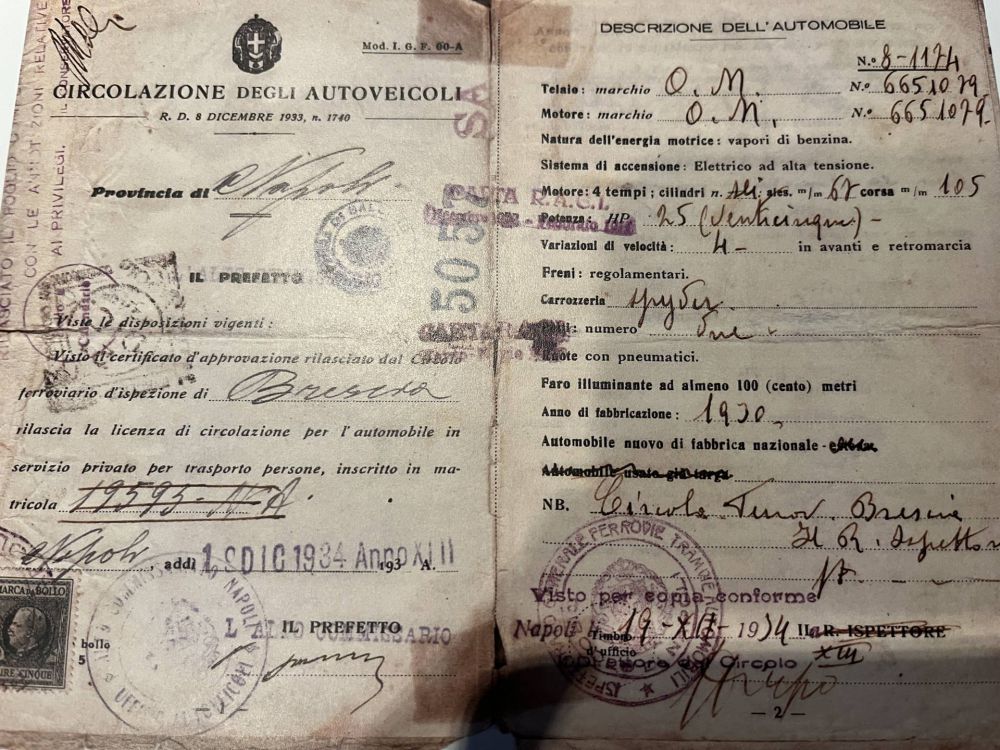 Mod. I. G. F. 60-A
CIRCOLAZIONE DEGLI AUTOVEICOLI
R. D. 8 DICEMBRE 1933, n. 1740
Provincia di Napoli
IL PREFETTO
Viste le disposizioni vigenti :
Visto il certificato d'approvazione rilasciato dal Circolo
ferroviario d'ispezione di Brescia
rilascia la licenza di circolazione per l'automobile in
servizio privato per trasporto persone, inscritto in ma-
tricola 19595 - NA
Napoli, addì 19 DIC 1934 Anno XIII 193 A.
MARCA DA BOLLO
LIRE CINQUE
bollo
5
IL PREFETTO
L'ALTO COMMISSARIO
CON LE
AI PRIVILEGI.
50 57
SA
CARTA R.A.C.I.
DESCRIZIONE DELL'AUTOMOBILE
N.º 8-1174
Telaio: marchio O. M. N.º 6651079
Motore: marchio O. M. N.º 6651079
Natura dell'energia motrice: vapori di benzina.
Sistema di accensione: Elettrico ad alta tensione.
Motore: 4 tempi; cilindri n. ales. m/m 67 corsa m/m 105
Potenza: HP. 25 (venticinque) -
Variazioni di velocità: 4 - in avanti e retromarcia
Freni: regolamentari.
Carrozzeria spyder
numero Due
Ruote con pneumatici.
Faro illuminante ad almeno 100 (cento) metri
Anno di fabbricazione: 1930
Automobile nuovo di fabbrica nazionale -
Automobile usato già targa
NB. Circolo Ferrov Brescia
Il R. Ispettore
Visto per copia conforme
Napoli li 19-XII-1934 IL R. ISPETTORE
XIII
Timbro
d'ufficio
Direttore del Circolo
— 2 —